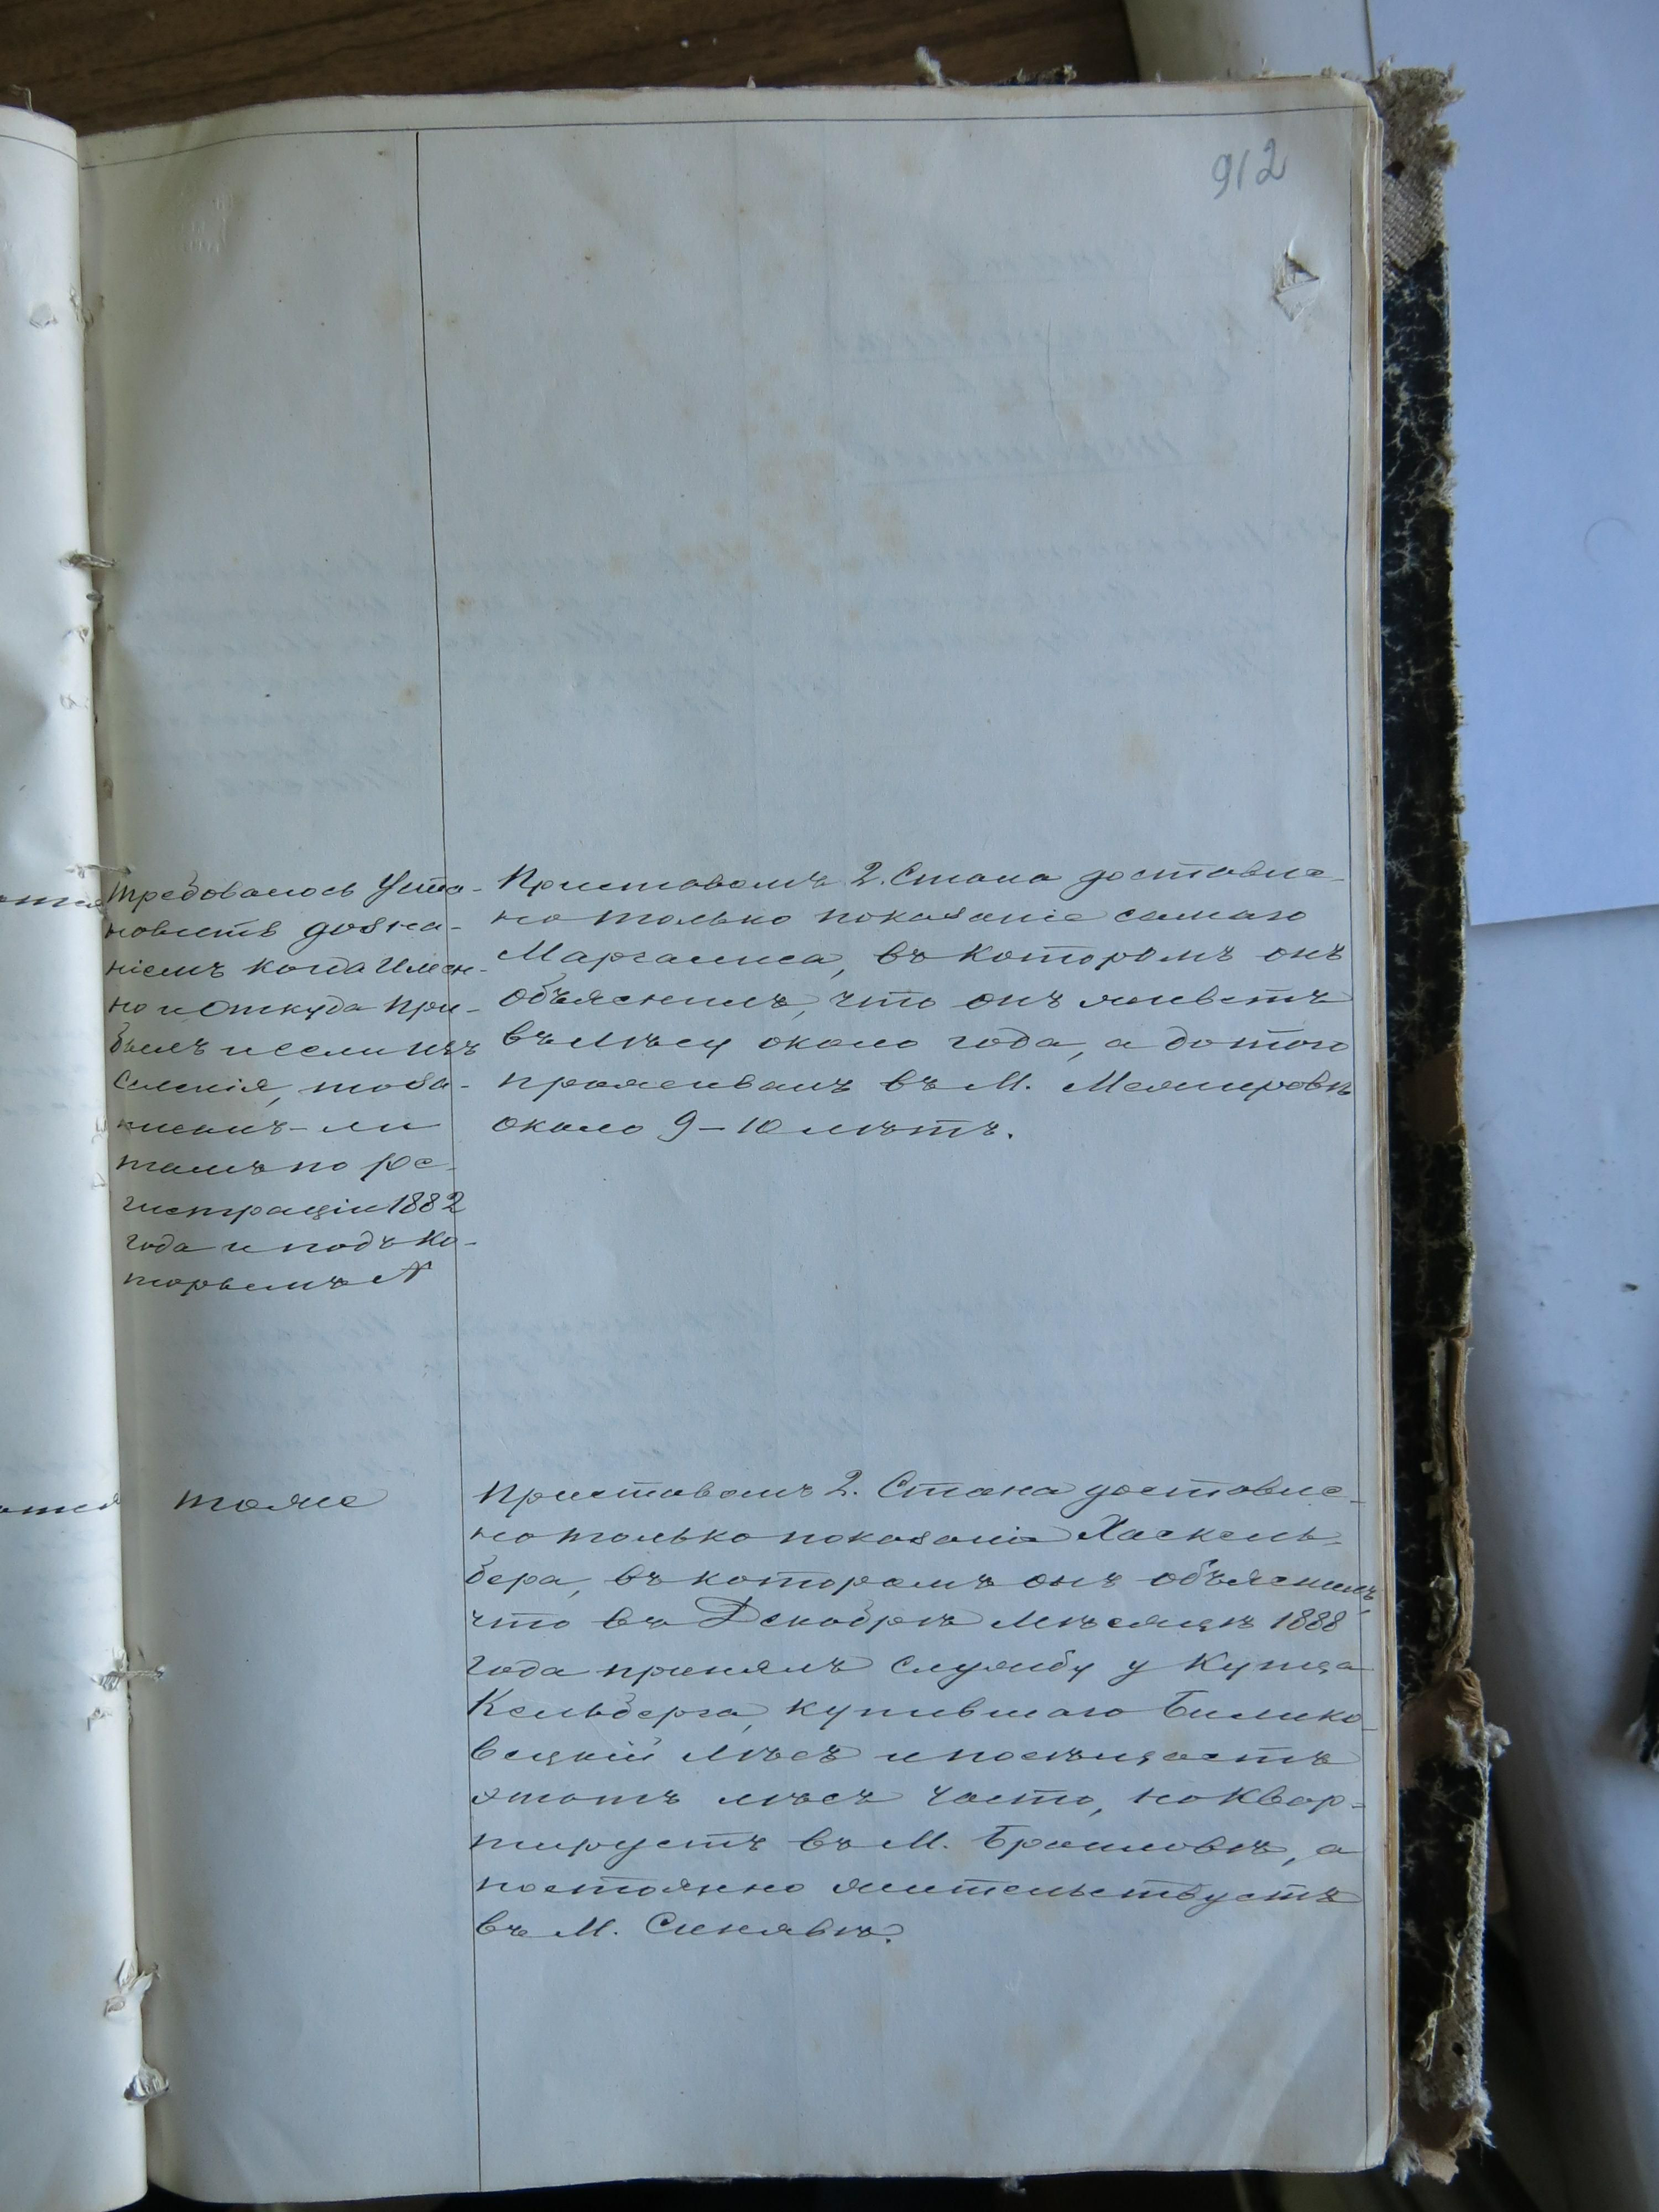 912
Требовалось Уста-
новить дозна-
ніемъ когда Имен-
но и Откуда При-
былъ и если изъ
Селенія, то за-
писанъ-ли
тамъ по ре-
гистраціи 1882
года и подъ Ко-
торымъ №
Приставомъ 2. Стана доставле-
но только показаніе самаго
Маргалиса, въ Которомъ онъ
Объяснилъ, что онъ живетъ
въ лѣсу около года, а до того
проживалъ въ М. Межировѣ
около 9–10 лѣтъ.
тоже
Приставомъ 2. Стана доставле-
но только показаніе Хаскель-
бера, въ которомъ онъ объяснилъ,
что въ Декабрѣ Мѣсяцѣ 1888
года принялъ Службу у Купца
Кельберга, купившаго Билико-
вецкій лѣсъ и посѣщаетъ
этотъ лѣсъ часто, но Квар-
тируетъ въ М. Браиловѣ, а
постоянно жительствуетъ
въ М. Синявѣ.